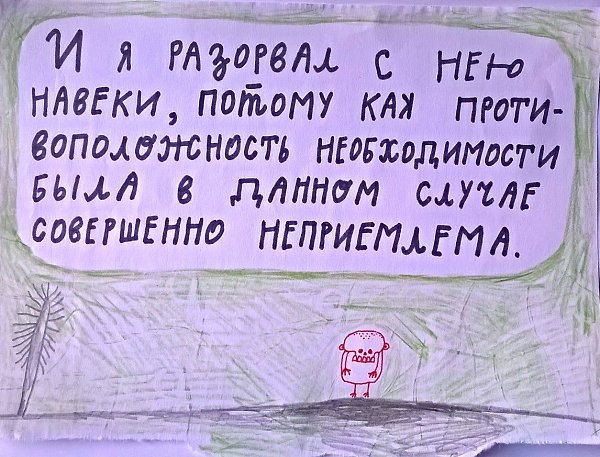 И я разорвал с нею
навеки, потому как проти-
воположность необходимости
была в данном случае
совершенно неприемлема.